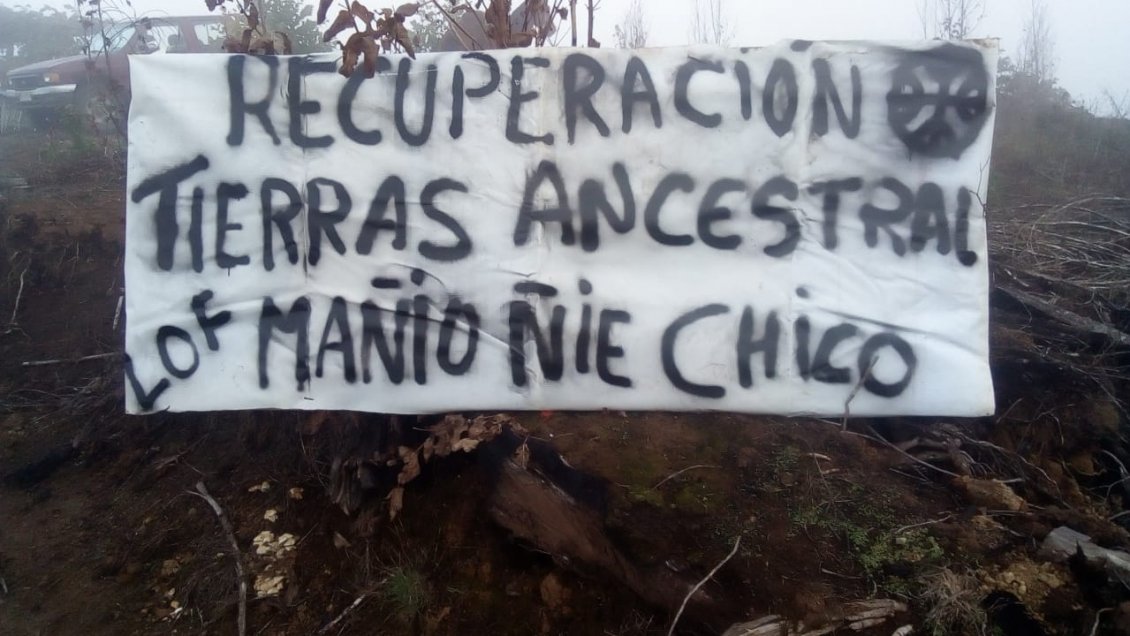 RECUPERACIÓN
TIERRAS ANCESTRAL
LOF MAÑIO ÑIE CHICO